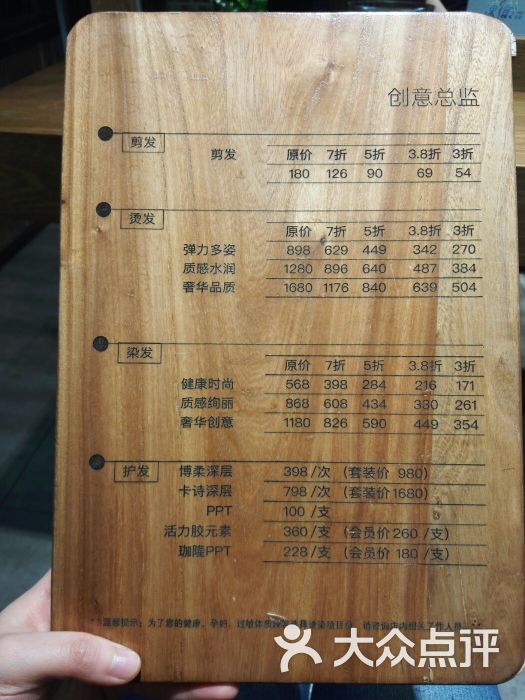 创意总监
剪发
剪发 原价 7折 5折 3.8折 3折
180 126 90 69 54
烫发
原价 7折 5折 3.8折 3折
弹力多姿 898 629 449 342 270
质感水润 1280 896 640 487 384
奢华品质 1680 1176 840 639 504
染发
原价 7折 5折 3.8折 3折
健康时尚 568 398 284 216 171
质感绚丽 868 608 434 330 261
奢华创意 1180 826 590 449 354
护发 博柔深层 398/次 (套装价 980)
卡诗深层 798/次 (套装价1680)
PPT 100/支
活力胶元素 360/支 (会员价260/支)
珈隆PPT 228/支 (会员价 180/支)
温馨提示：为了您的健康，孕妇、过敏体质
大众点评